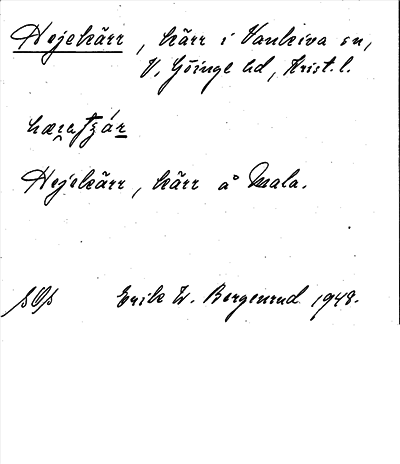 Hejekärr, kärr i Vankiva sn,
V. Göinge hd, Krist. l.
Hejekärr, kärr å Mala.
Erik W. Borgenrud 1948.